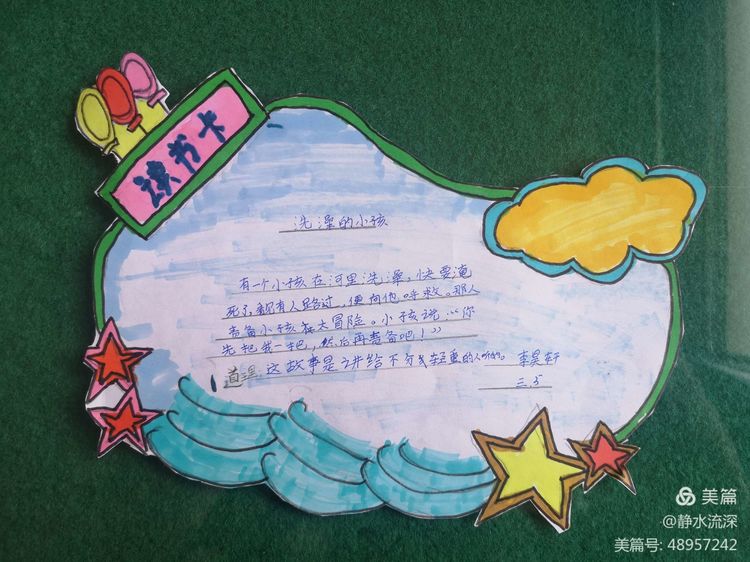 读书卡
洗澡的小孩
有一个小孩在河里洗澡,快要淹
死了,就有人路过,便向他呼救。那人
责备小孩太冒险。小孩说:“你
先把我一把,然后再责备吧!”
道理:这故事是讲给不分轻重的人听的。 李昊轩
三.5
美篇
@静水流深
美篇号: 48957242